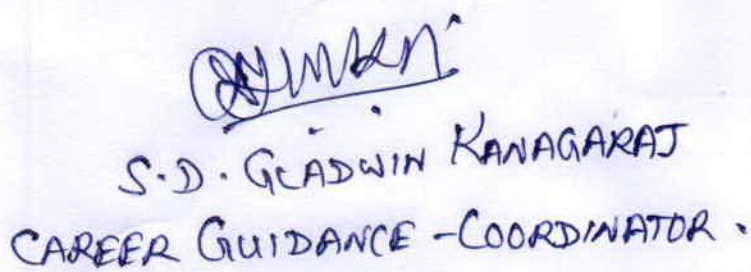 S.D. GLADWIN KANAGARAJ
CAREER GUIDANCE - COORDINATOR.